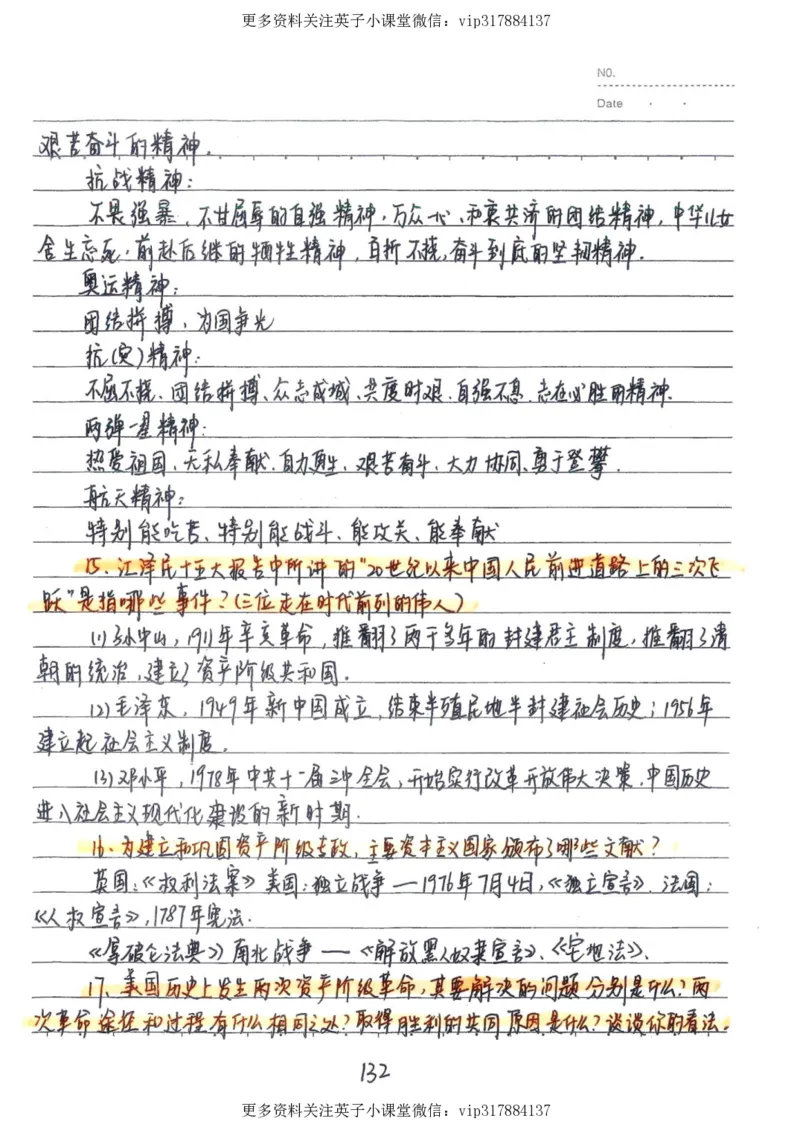 更多资料关注英子小课堂微信：vip317884137
NO.
Date
艰苦奋斗的精神。
抗战精神：
不畏强暴、不甘屈辱的自强精神，万众一心、和衷共济的团结精神，中华儿女
舍生忘死、前赴后继的牺牲精神，百折不挠，奋斗到底的坚韧精神.
奥运精神：
团结拼搏、为国争光
抗(灾)精神：
不屈不挠、团结拼搏、众志成城、共度时艰、自强不息、志在必胜的精神.
两弹一星精神：
热爱祖国、无私奉献、自力更生、艰苦奋斗、大力协同、勇于登攀.
航天精神：
特别能吃苦、特别能战斗、能攻关、能奉献
15、江泽民十五大报告中所讲的"20世纪以来中国人民前进道路上的三次飞
跃"是指哪些事件？(三位走在时代前列的伟人)
(1)孙中山，1911年辛亥革命，推翻了两千多年的封建君主制度，推翻了清
朝的统治，建立了资产阶级共和国.
(2)毛泽东，1949年新中国成立，结束半殖民地半封建社会历史；1956年
建立起社会主义制度。
(3)邓小平，1978年中共十一届三中全会，开始实行改革开放伟大决策.中国历史
进入社会主义现代化建设的新时期.
16、为建立和巩固资产阶级专政，主要资本主义国家颁布了哪些文献？
英国：《权利法案》美国：独立战争—1976年7月4日，《独立宣言》.法国：
《人权宣言》，1787年宪法.
《拿破仑法典》南北战争—《解放黑人奴隶宣言》、《宅地法》、
17、美国历史上发生两次资产阶级革命，其要解决的问题分别是什么？两
次革命途径和过程有什么相同之处？取得胜利的共同原因是什么？谈谈你的看法.
132
更多资料关注英子小课堂微信：vip317884137